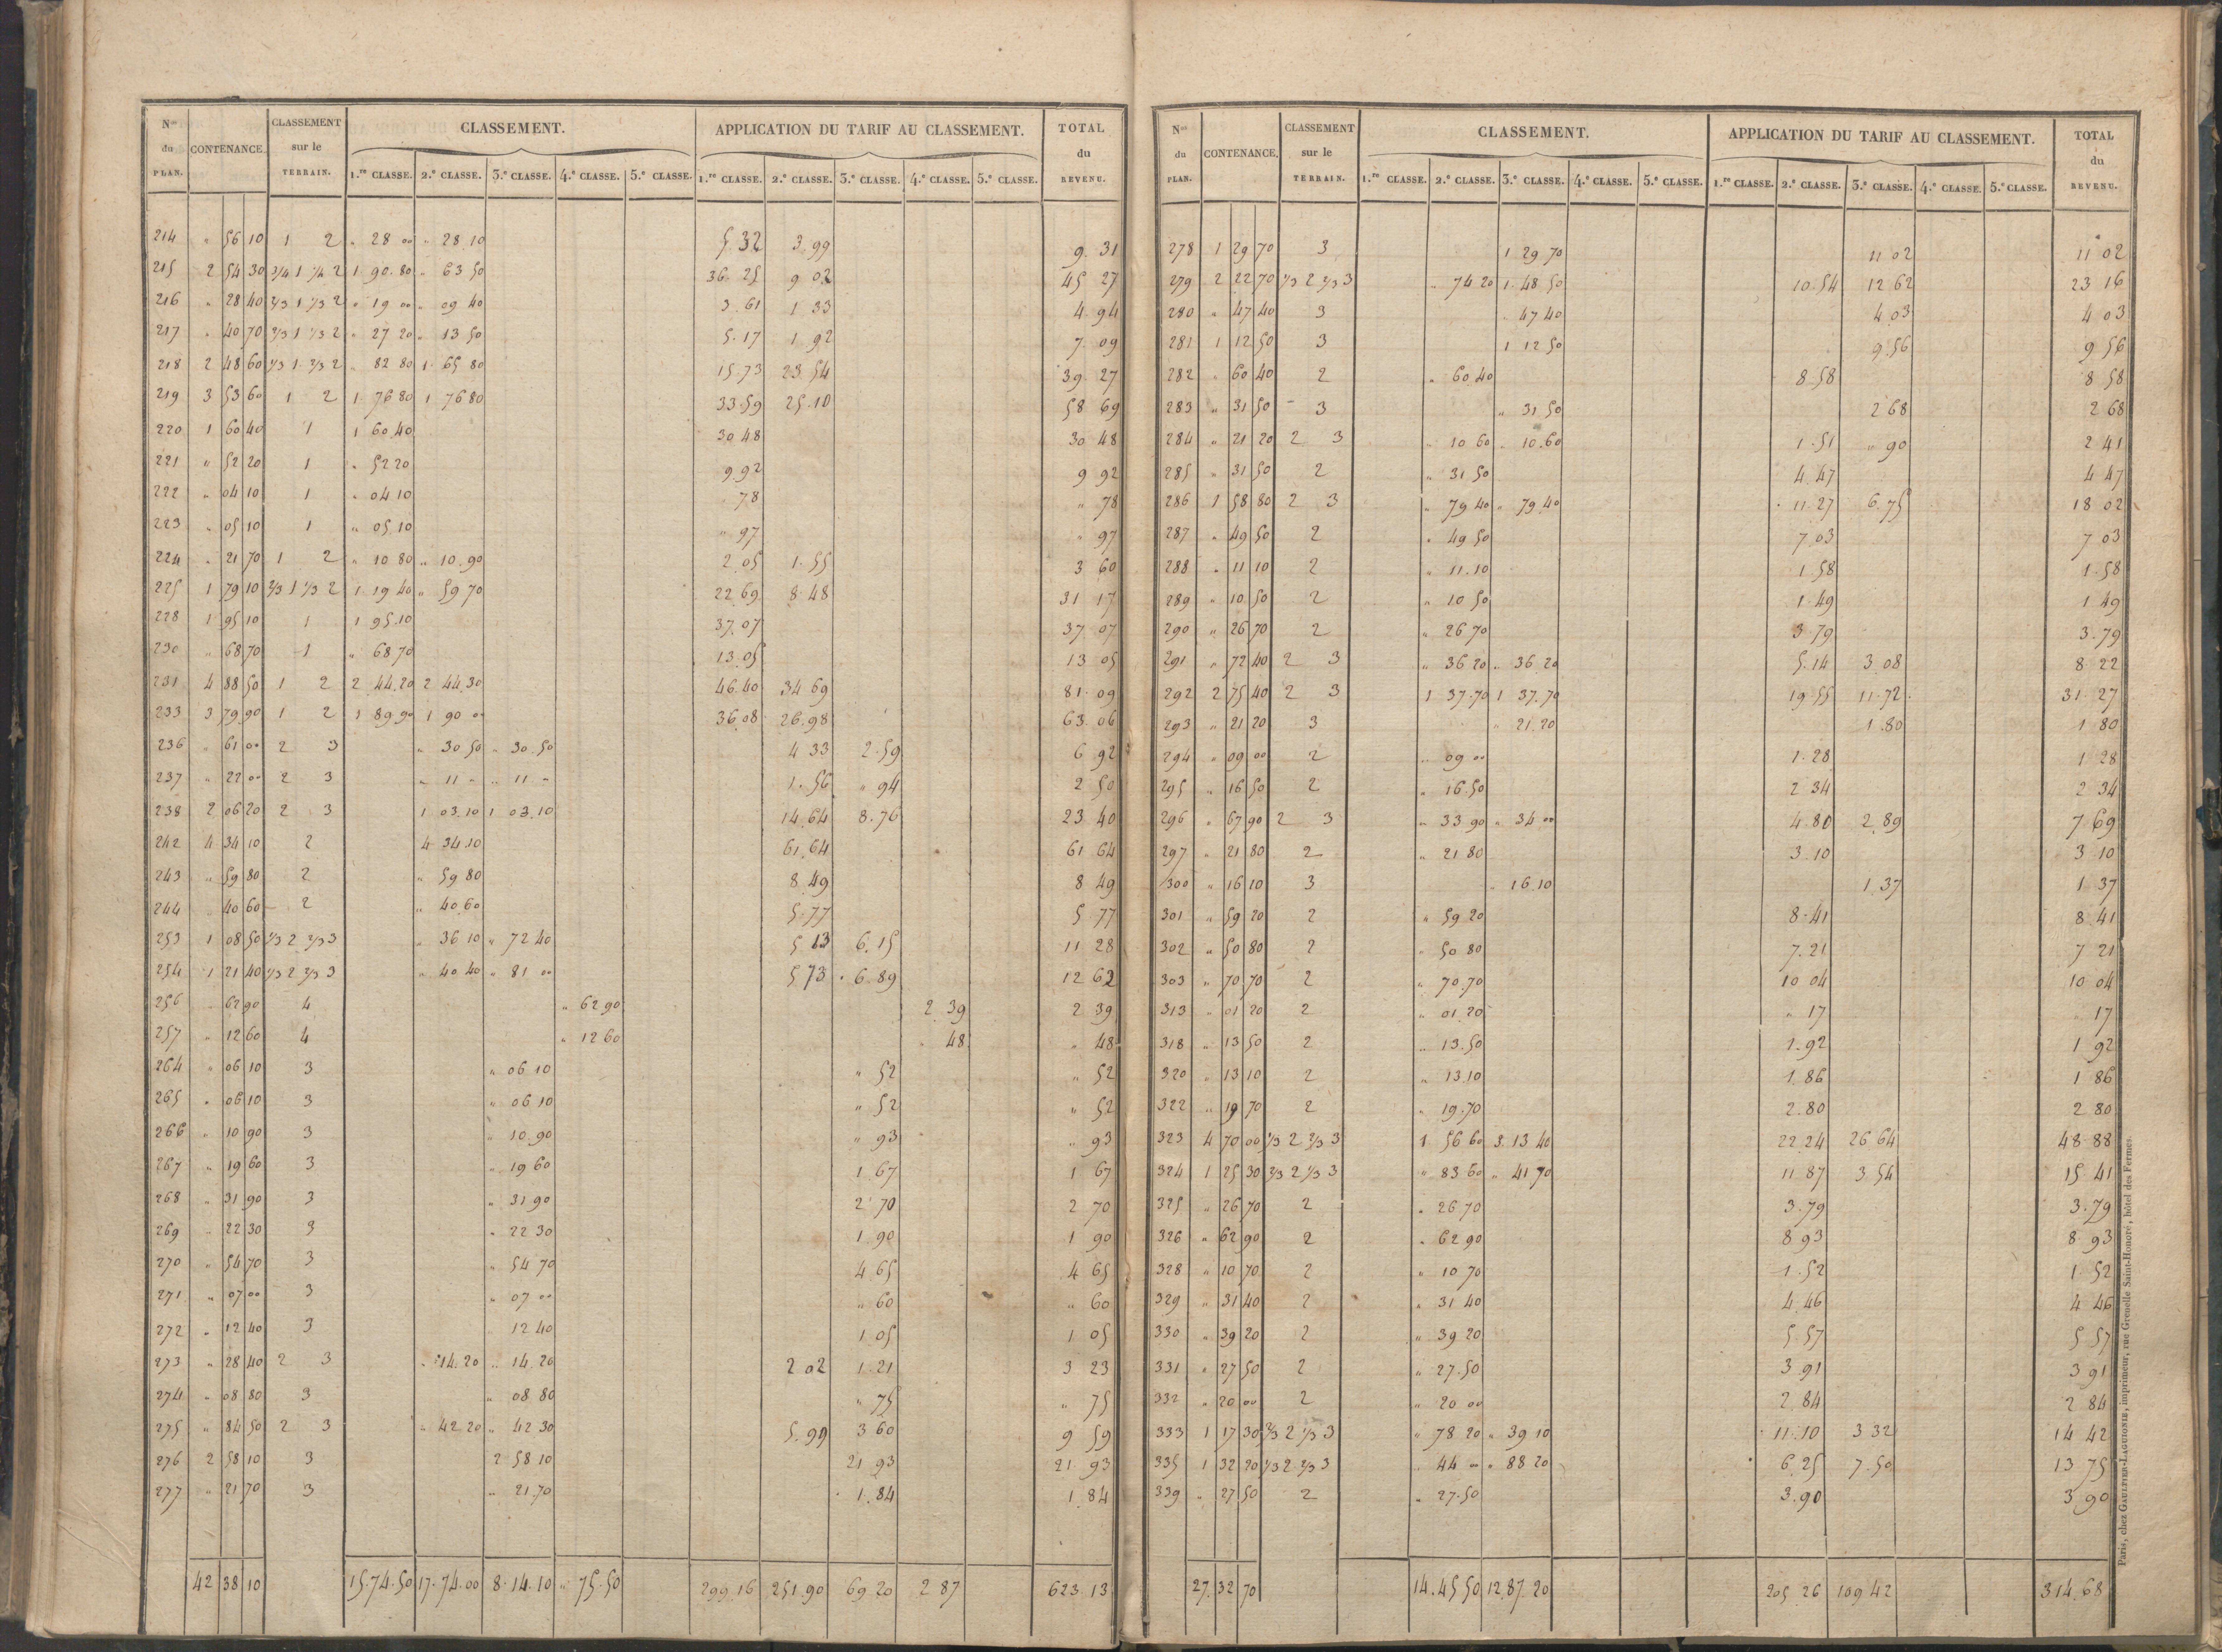 Nos du PLAN. CONTENANCE. CLASSEMENT sur le TERRAIN. CLASSEMENT. APPLICATION DU TARIF AU CLASSEMENT. TOTAL du REVENU.
1.re CLASSE. 2.e CLASSE. 3.e CLASSE. 4.e CLASSE. 5.e CLASSE. 1.re CLASSE. 2.e CLASSE. 3.e CLASSE. 4.e CLASSE. 5.e CLASSE.
214 " 56 10 1 2 " 28 00 " 28.10 5.32 3.99 9.31
215 2 54 30 3/4 1 1/4 2 1 90.80 " 63 50 36.25 9 02 45 27
216 " 28 40 2/3 1 1/3 2 " 19 00 " 09 40 3.61 1 33 4.94
217 " 40 70 2/3 1 1/3 2 " 27 20 " 13 50 5.17 1.92 7 09
218 2 48 60 1/3 1 2/3 2 " 82 80 1 65 80 15.73 23.54 39.27
219 3 53 60 1 2 1 76 80 1 76 80 33.59 25.10 58 69
220 1 60 40 1 1 60.40 30 48 30 48
221 " 52 20 1 " 52 20 9.92 9 92
222 " 04 10 1 " 04 10 " 78 " 78
223 " 05 10 1 " 05.10 " 97 " 97
224 " 21 70 1 2 " 10 80 " 10.90 2.05 1.55 3 60
225 1 79 10 2/3 1 1/3 2 1 19 40 " 59 70 22 69 8.48 31 17
228 1 95 10 1 1 95.10 37.07 37 07
230 " 68 70 1 " 68 70 13.05 13 05
231 4 88 50 1 2 2 44.20 2 44.30 46.40 34 69 81.09
233 3 79 90 1 2 1 89.90 1 90 00 36.08 26.98 63.06
236 " 61 00 2 3 " 30 50 " 30.50 4 33 2.59 6 92
237 " 22 00 2 3 " 11 - " 11 - 1.56 " 94 2 50
238 2 06 20 2 3 1 03.10 1 03.10 14.64 8.76 23 40
242 4 34 10 2 4 34.10 61.64 61 64
243 " 59 80 2 " 59 80 8.49 8 49
244 " 40 60 2 " 40 60 5.77 5 77
253 1 08 50 1/3 2 2/3 3 " 36 10 " 72 40 5 13 6.15 11 28
254 1 21 40 1/3 2 2/3 3 " 40 40 " 81 00 5 73 6.89 12 62
256 " 62 90 4 " 62 90 2.39 2 39
257 " 12 60 4 " 12 60 " 48 " 48
264 " 06 10 3 " 06 10 " 52 " 52
265 " 06 10 3 " 06 10 " 52 " 52
266 " 10 90 3 " 10.90 " 93 " 93
267 " 19 60 3 " 19 60 1.67 1 67
268 " 31 90 3 " 31.90 2.70 2 70
269 " 22 30 3 " 22 30 1.90 1 90
270 " 54 70 3 " 54 70 4 65 4 65
271 " 07 00 3 " 07 00 " 60 " 60
272 " 12 40 3 " 12 40 1 05 1 05
273 " 28 40 2 3 " 14.20 " 14.20 2 02 1.21 3 23
274 " 08 80 3 " 08 80 " 75 " 75
275 " 84 50 2 3 " 42 20 " 42 30 5.99 3 60 9 59
276 2 58 10 3 2 58 10 21 93 21 93
277 " 21 70 3 " 21.70 1.84 1.84
42 38 10 15.74.50 17.74.00 8.14.10 " 75.50 299.16 251.90 69 20 2 87 623 13
Nos du PLAN. CONTENANCE. CLASSEMENT sur le TERRAIN. CLASSEMENT. APPLICATION DU TARIF AU CLASSEMENT. TOTAL du REVENU.
1.re CLASSE. 2.e CLASSE. 3.e CLASSE. 4.e CLASSE. 5.e CLASSE. 1.re CLASSE. 2.e CLASSE. 3.e CLASSE. 4.e CLASSE. 5.e CLASSE.
278 1 29 70 3 1 29 70 11 02 11 02
279 2 22 70 1/3 2 2/3 3 " 74 20 1.48 50 10.54 12 62 23 16
280 " 47 40 3 " 47 40 4.03 4 03
281 1 12 50 3 1 12 50 9.56 9 56
282 " 60 40 2 " 60 40 8.58 8 58
283 " 31 50 3 " 31 50 2 68 2 68
284 " 21 20 2 3 " 10 60 " 10.60 1.51 " 90 2 41
285 " 31 50 2 " 31 50 4.47 4 47
286 1 58 80 2 3 " 79 40 " 79 40 11.27 6.75 18 02
287 " 49 50 2 " 49 50 7.03 7 03
288 " 11 10 2 " 11.10 1 58 1.58
289 " 10 50 2 " 10 50 1.49 1 49
290 " 26 70 2 " 26 70 3.79 3.79
291 " 72 40 2 3 " 36 20 " 36 20 5.14 3 08 8 22
292 2 75 40 2 3 1 37.70 1 37.70 19 55 11.72 31 27
293 " 21 20 3 " 21.20 1.80 1 80
294 " 09 00 2 " 09 00 1.28 1 28
295 " 16 50 2 " 16.50 2 34 2 34
296 " 67 90 2 3 " 33 90 " 34 00 4.80 2.89 7 69
297 " 21 80 2 " 21 80 3.10 3 10
300 " 16 10 3 " 16.10 1.37 1 37
301 " 59 20 2 " 59 20 8.41 8.41
302 " 50 80 2 " 50 80 7.21 7 21
303 " 70 70 2 " 70.70 10 04 10 04
313 " 01 20 2 " 01.20 " 17 " 17
318 " 13 50 2 " 13.50 1.92 1 92
320 " 13 10 2 " 13.10 1.86 1 86
322 " 19 70 2 " 19.70 2.80 2 80
323 4 70 00 1/3 2 2/3 3 1 56 60 3.13 40 22.24 26 64 48 88
324 1 25 30 2/3 2 1/3 3 " 83 60 " 41 70 11 87 3 54 15 41
325 " 26 70 2 " 26 70 3.79 3.79
326 " 62 90 2 " 62 90 8 93 8 93
328 " 10 70 2 " 10 70 1.52 1.52
329 " 31 40 2 " 31 40 4.46 4 46
330 " 39 20 2 " 39 20 5.57 5 57
331 " 27 50 2 " 27.50 3 91 3 91
332 " 20 00 2 " 20 00 2 84 2 84
333 1 17 30 2/3 2 1/3 3 " 78 20 " 39 10 11.10 3 32 14 42
335 1 32 20 1/3 2 2/3 3 " 44 00 " 88 20 6.25 7.50 13 75
339 " 27 50 2 " 27.50 3.90 3 90
27.32 70 14.45 50 12.87.20 205 26 109 42 314.68
Paris, chez GAULTIER-LAGUIONIE, imprimeur, rue Grenelle Saint-Honoré, hôtel des Fermes.